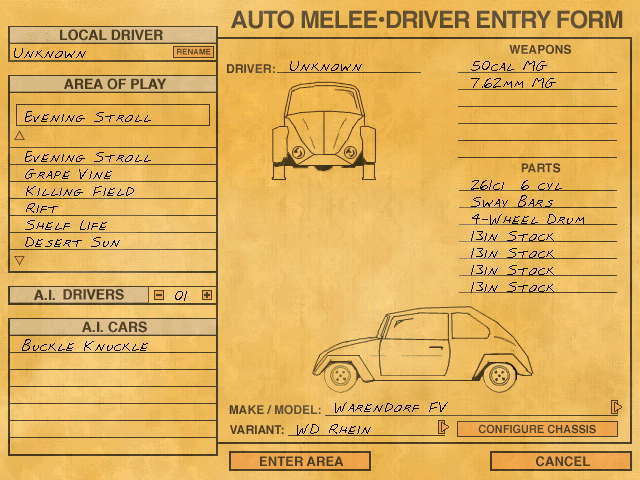 AUTO MELEE•DRIVER ENTRY FORM
LOCAL DRIVER
Unknown
RENAME
AREA OF PLAY
Evening Stroll
Evening Stroll
Grape Vine
Killing Field
Rift
Shelf Life
Desert Sun
A.I. DRIVERS
01
A.I. CARS
Buckle Knuckle
DRIVER: Unknown
WEAPONS
50cal MG
7.62mm MG
PARTS
261ci 6 cyl
Sway Bars
4-Wheel Drum
13in Stock
13in Stock
13in Stock
13in Stock
MAKE / MODEL: Warendorf FV
VARIANT: WD Rhein
CONFIGURE CHASSIS
ENTER AREA
CANCEL